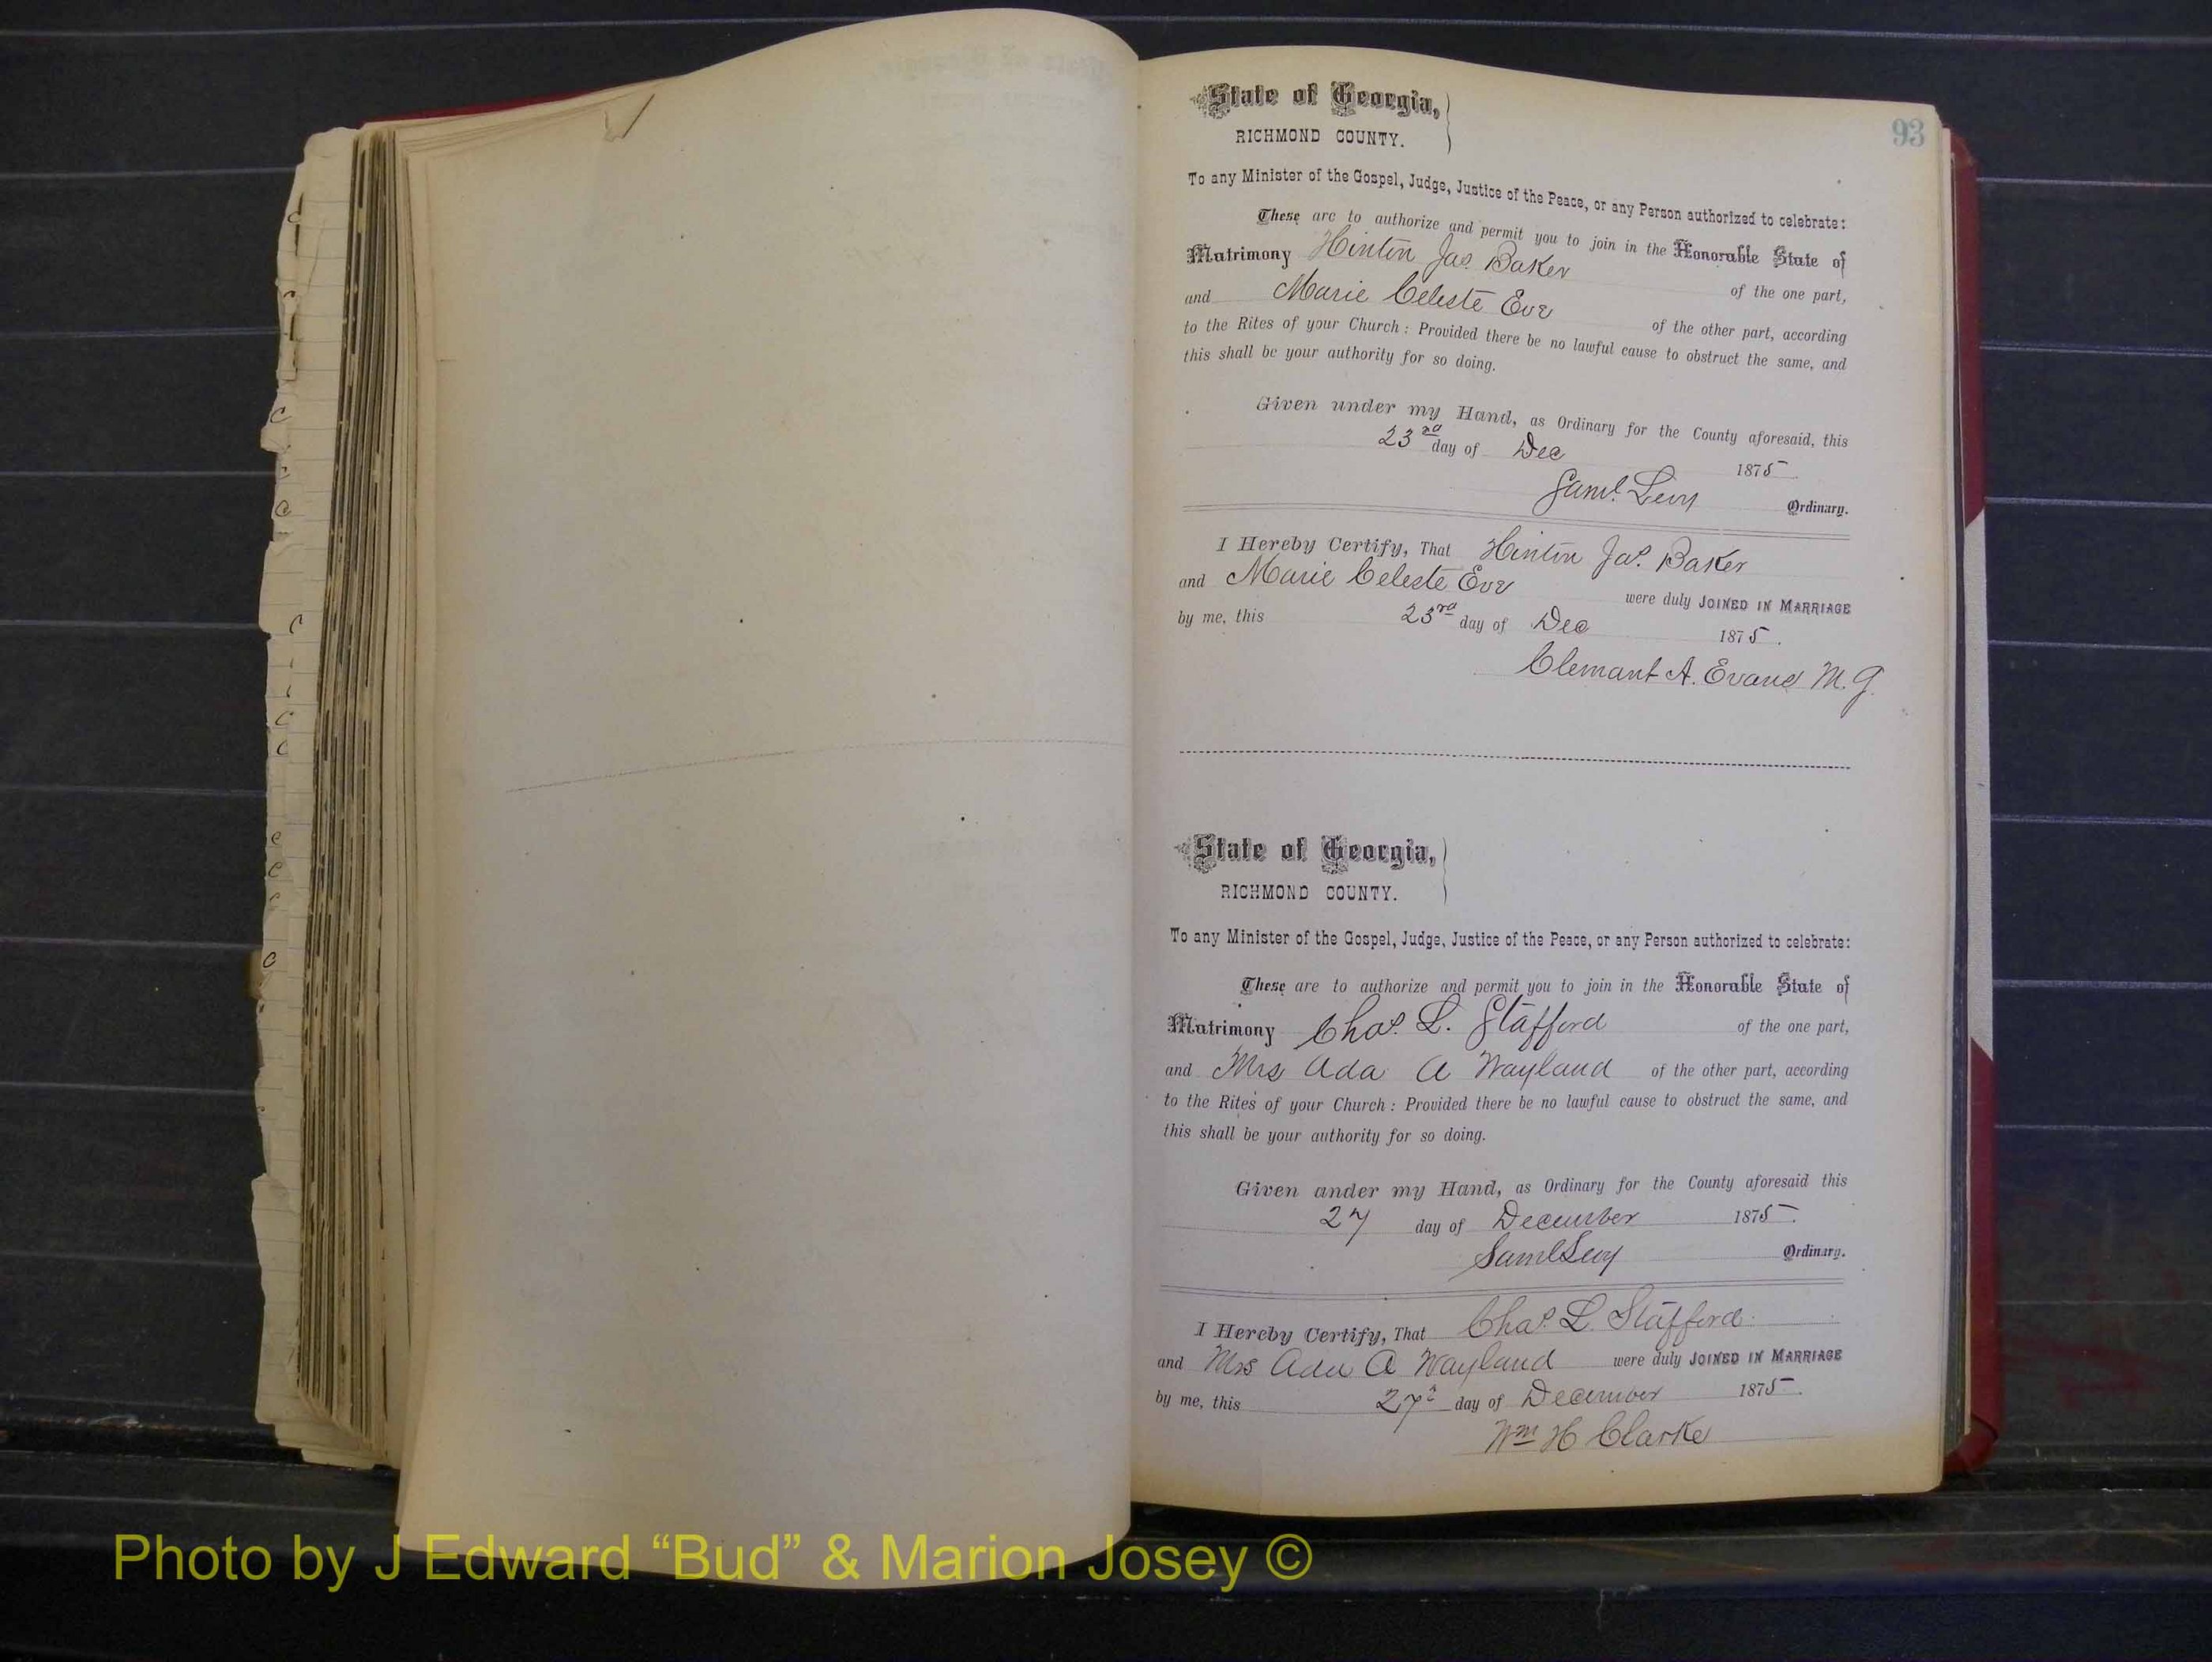 93
State of Georgia,
RICHMOND COUNTY.
To any Minister of the Gospel, Judge, Justice of the Peace, or any Person authorized to celebrate:
These are to authorize and permit you to join in the Honorable State of
Matrimony Hinton Jas. Baker of the one part,
and Marie Celeste Eve of the other part, according
to the Rites of your Church: Provided there be no lawful cause to obstruct the same, and
this shall be your authority for so doing.
Given under my Hand, as Ordinary for the County aforesaid, this
23rd day of Dec 1875
Saml. Levy Ordinary.
I Hereby Certify, That Hinton Jas. Baker
and Marie Celeste Eve were duly JOINED IN MARRIAGE
by me, this 23rd day of Dec 1875.
Clemant A. Evans M. G.
State of Georgia,
RICHMOND COUNTY.
To any Minister of the Gospel, Judge, Justice of the Peace, or any Person authorized to celebrate:
These are to authorize and permit you to join in the Honorable State of
Matrimony Chas. L. Stafford of the one part,
and Mrs Ada A Wayland of the other part, according
to the Rites of your Church: Provided there be no lawful cause to obstruct the same, and
this shall be your authority for so doing.
Given under my Hand, as Ordinary for the County aforesaid this
27 day of December 1875.
Saml Levy Ordinary.
I Hereby Certify, That Chas. L. Stafford
and Mrs Ada A Wayland were duly JOINED IN MARRIAGE
by me, this 27th day of December 1875.
Wm H Clarke
Photo by J Edward “Bud” & Marion Josey ©